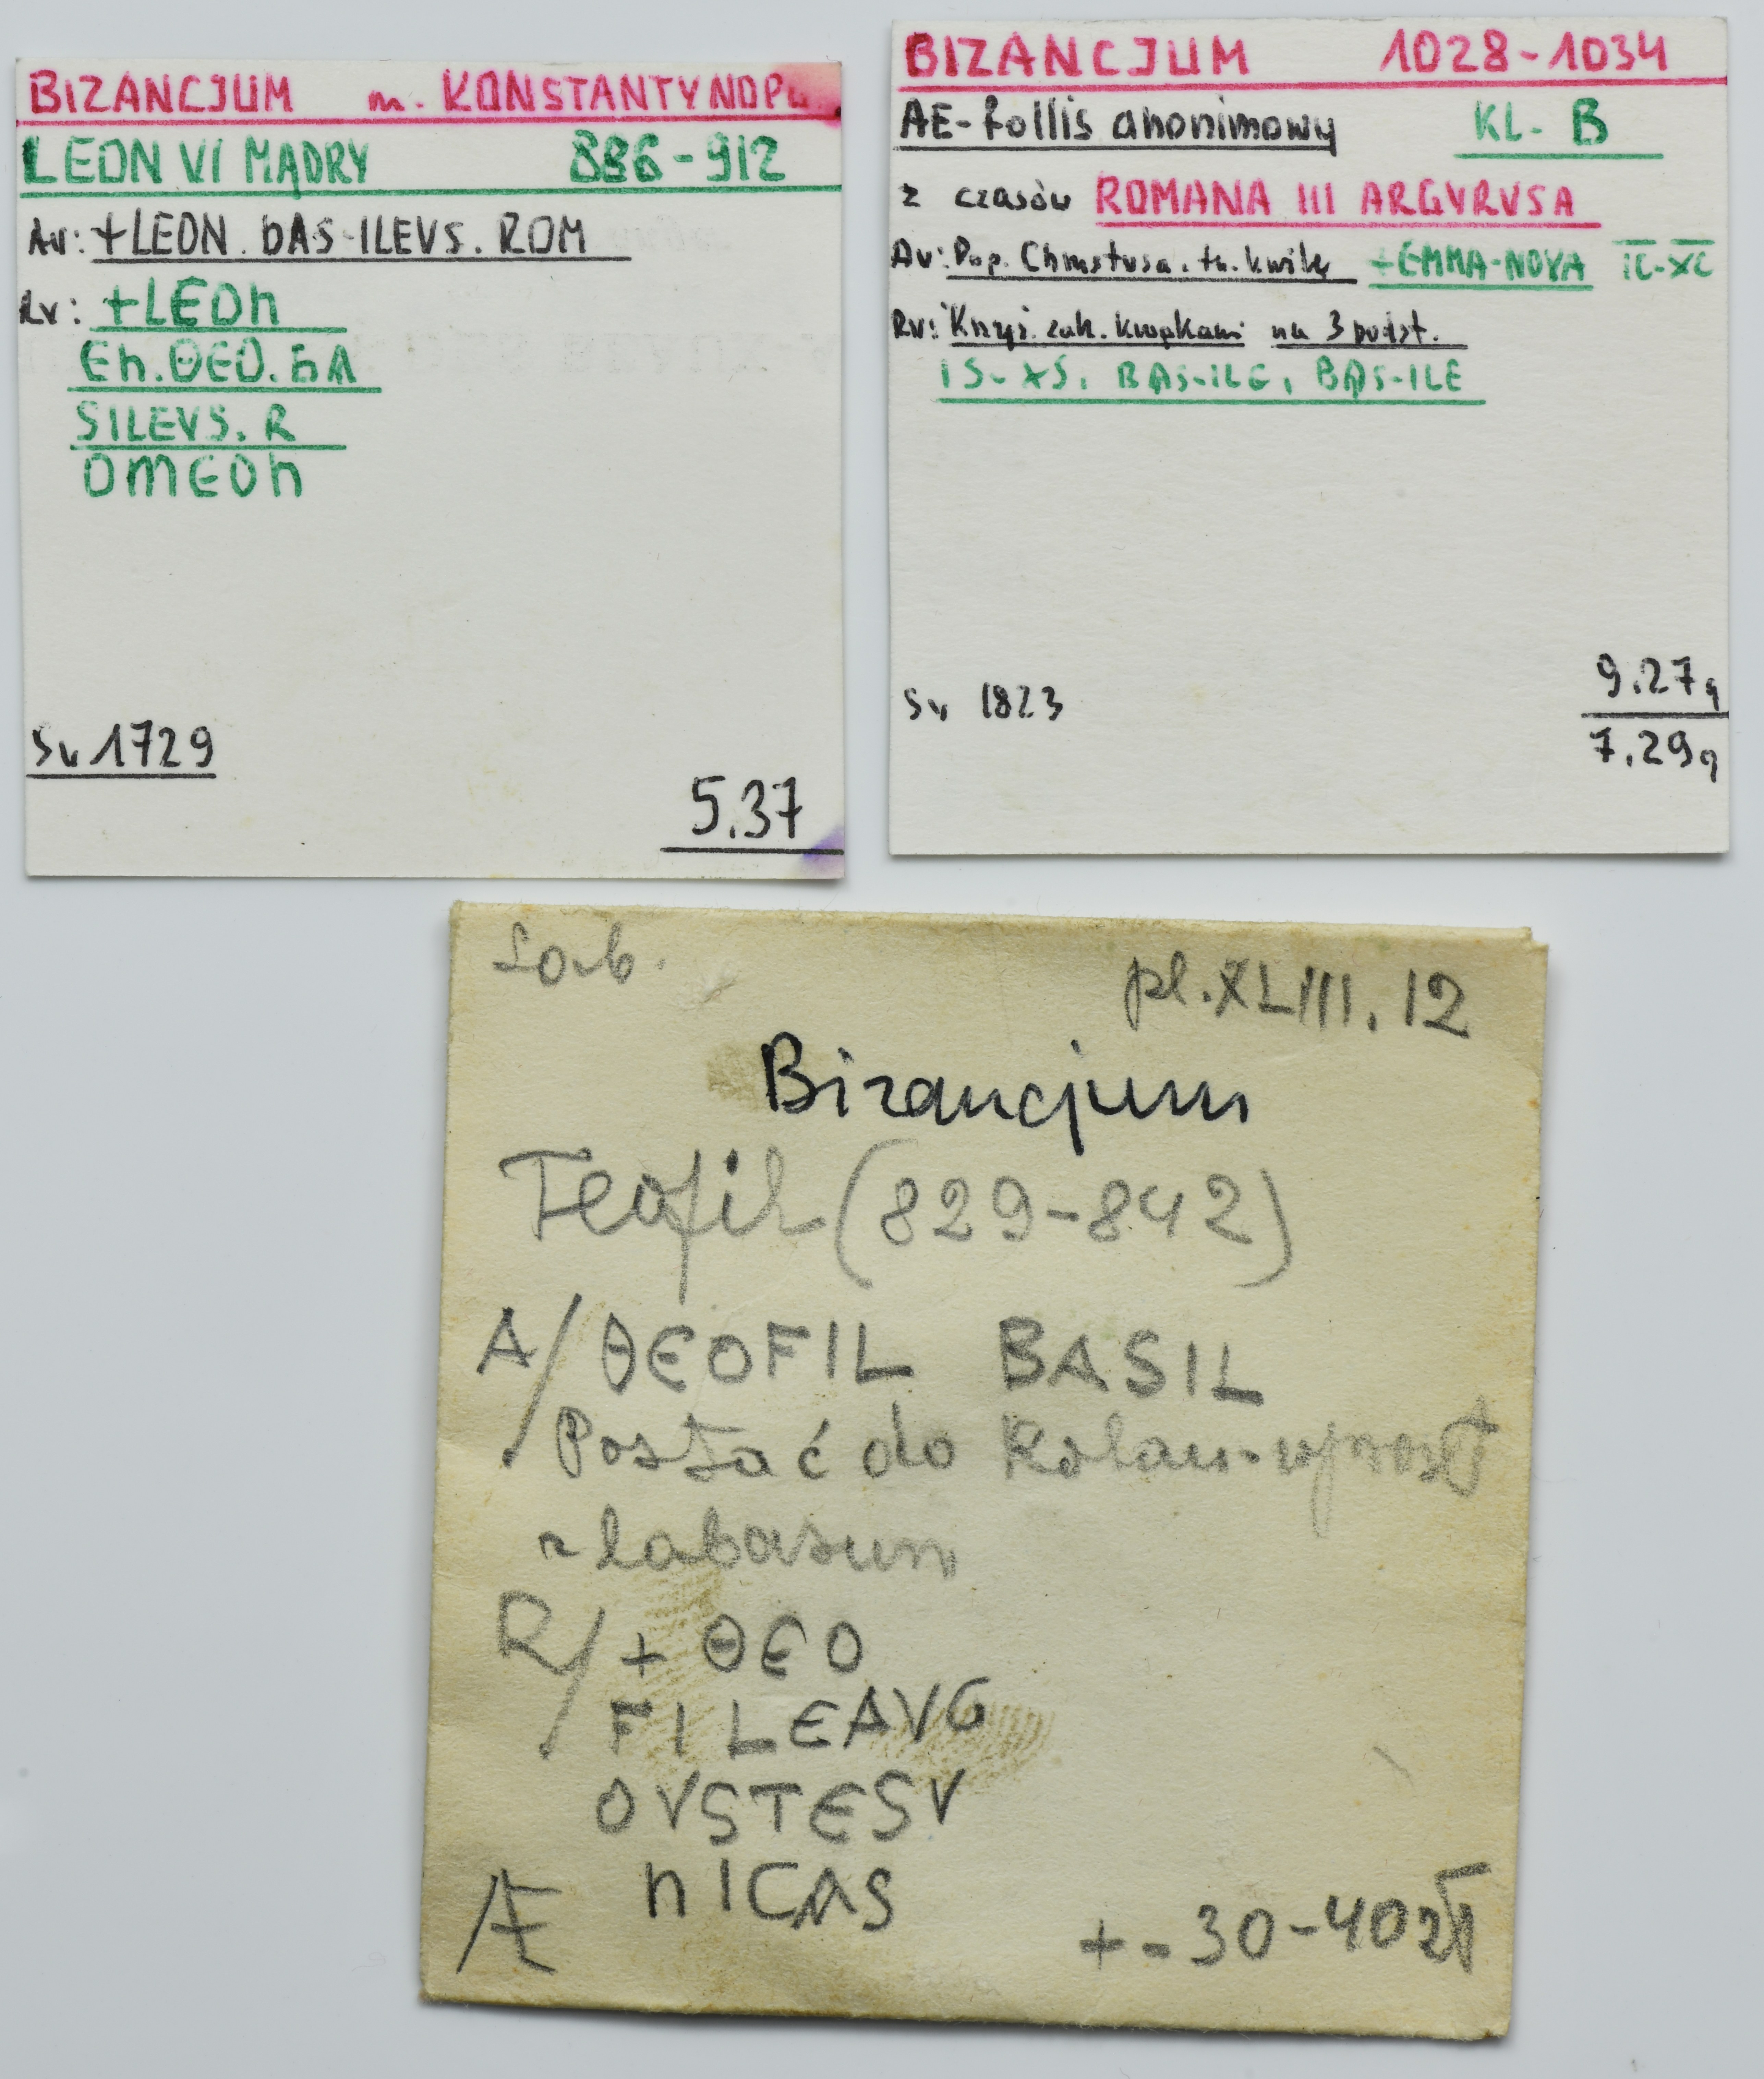 BIZANCJUM m. KONSTANTYNOPU
LEON VI MĄDRY 886-912
Av: +LEON.bAS-ILEVS.ROM
Rv: +LEOn
En.ΘEO.bA
SILEVS.R
OMEOn
Sv 1729
5.37
BIZANCJUM 1028-1034
AE-follis anonimowy KL- B
z czasów ROMANA III ARGYRVSA
Av: Pop. Chrystusa. tr. +EMMA-NOVA IC-XC
Rv: Krzyż. zak. kropkami na 3 podst.
IS-XS, BAS-ILE, BAS-ILE
Sv 1823
9.27g
7.29g
Sab.
pl.XLIII.12
Bizancjum
Teofil (829-842)
A/ ΘEOFIL BASIL
Postać do kolan-wprost
z labarum
R/ + ΘEO
FILEAVG
OVSTESV
nICAS
Æ +-30-40zł